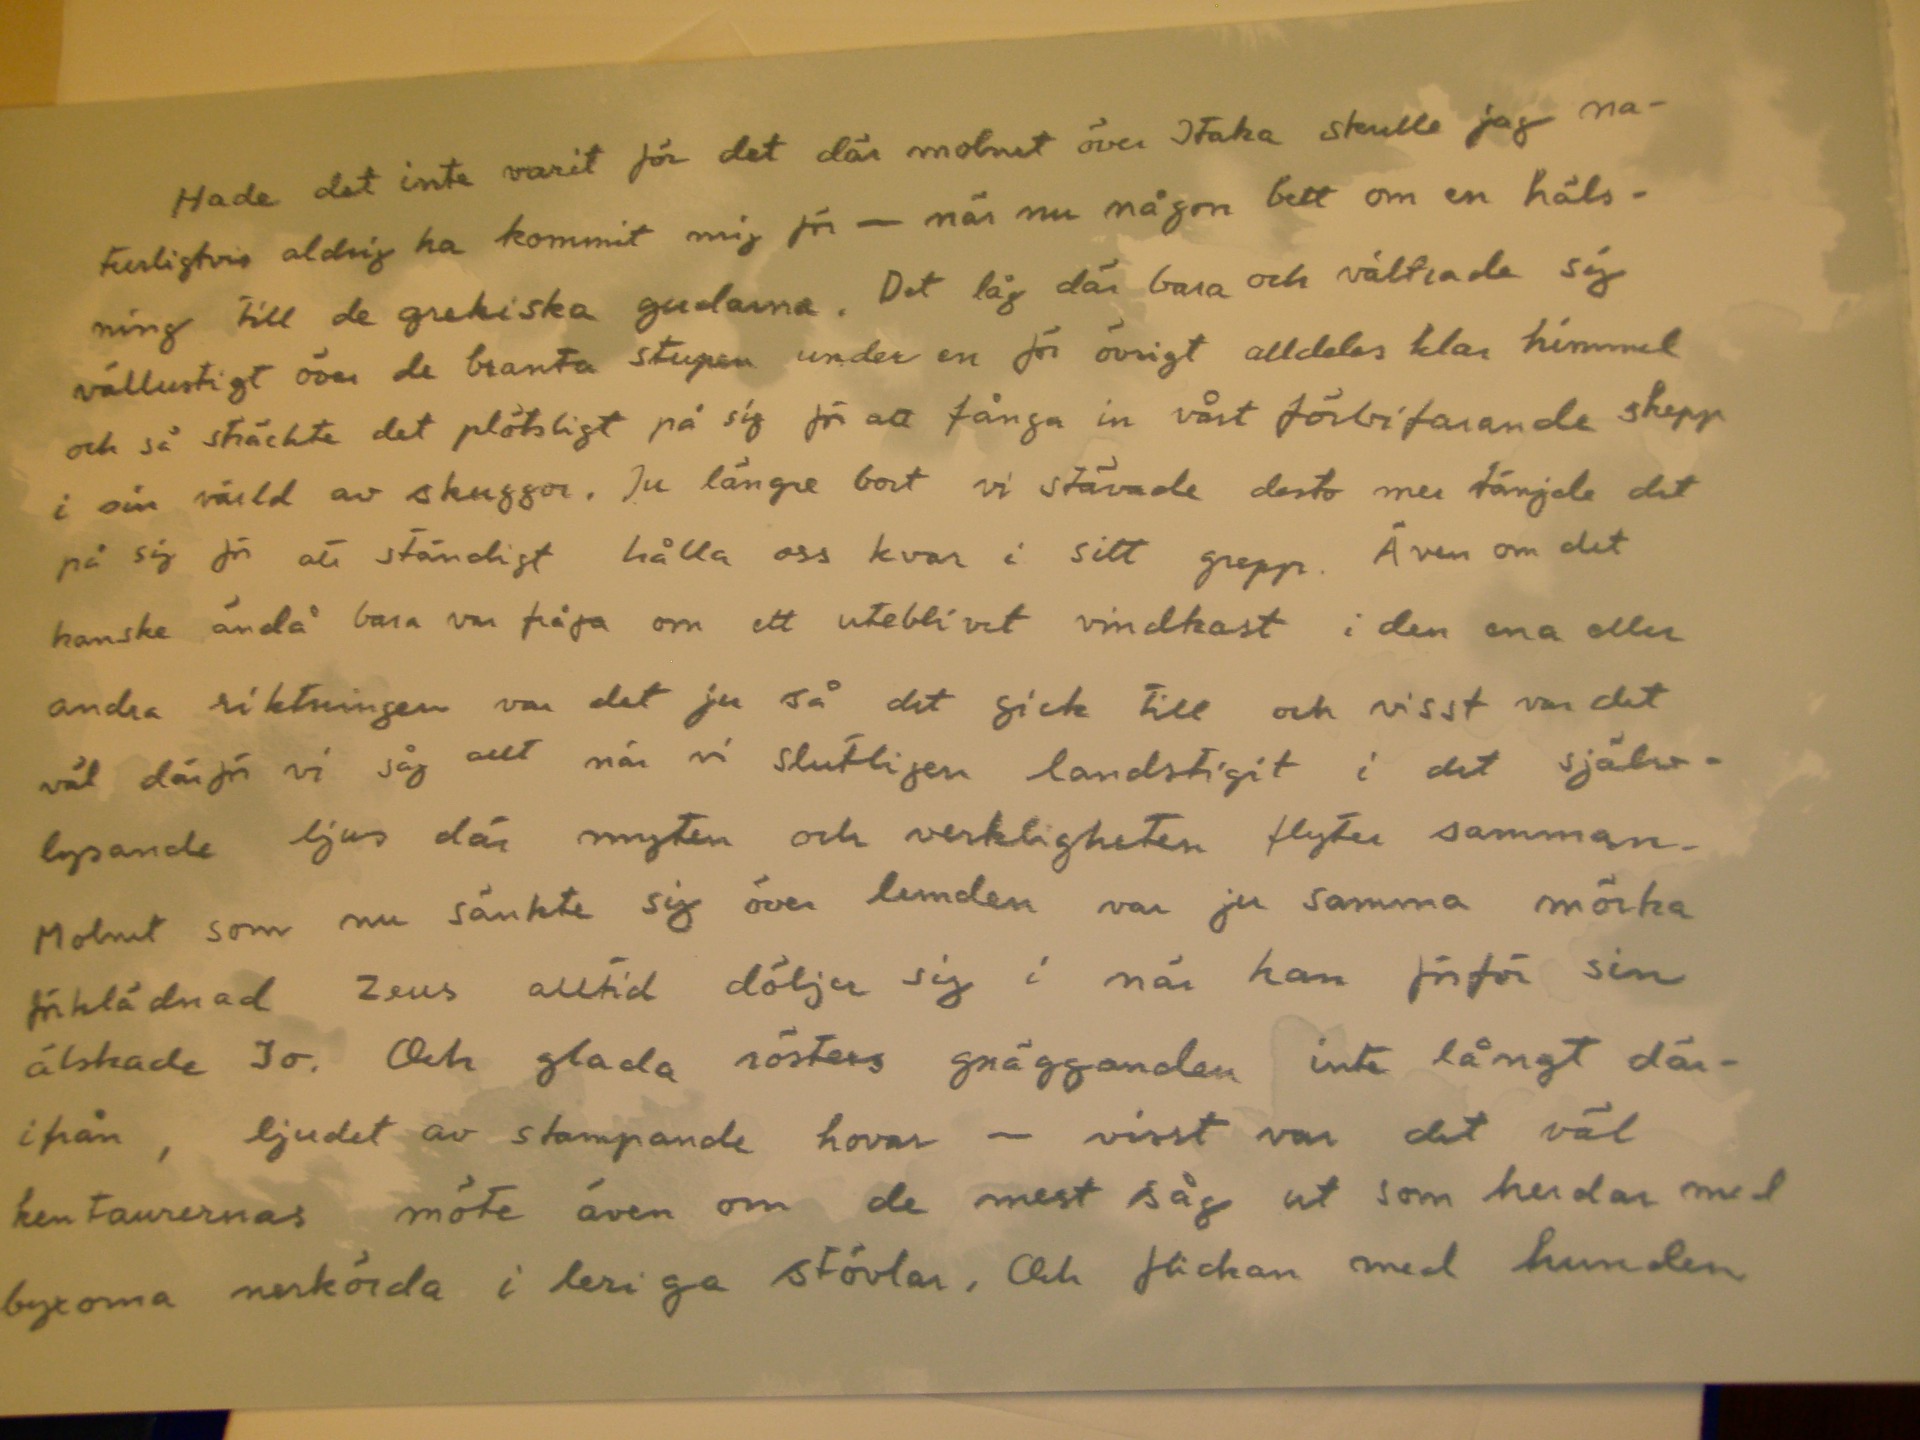 Hade det inte varit för det där molnet över Itaka skulle jag na-
turligtvis aldrig ha kommit mig för — när nu någon bett om en häls-
ning till de grekiska gudarna. Det låg där bara och vältrade sig
vällustigt över de branta stupen under en för övrigt alldeles klar himmel
och så sträckte det plötsligt på sig för att fånga in vårt förbifarande skepp
i sin värld av skuggor. Ju längre bort vi stävade desto mer tänjde det
på sig för att ständigt hålla oss kvar i sitt grepp. Även om det
kanske ändå bara var fråga om ett uteblivet vindkast i den ena eller
andra riktningen var det ju så det gick till och visst var det
väl därför vi såg allt när vi slutligen landstigit i det själv-
lysande ljus där myten och verkligheten flyter samman.
Molnet som nu sänkte sig över lunden var ju samma mörka
förklädnad Zeus alltid döljer sig i när han förför sin
älskade Io. Och glada rösters gnägganden inte långt där-
ifrån, ljudet av stampande hovar — visst var det väl
kentaurernas möte även om de mest såg ut som herdar med
byxorna nerkörda i leriga stövlar. Och flickan med hunden